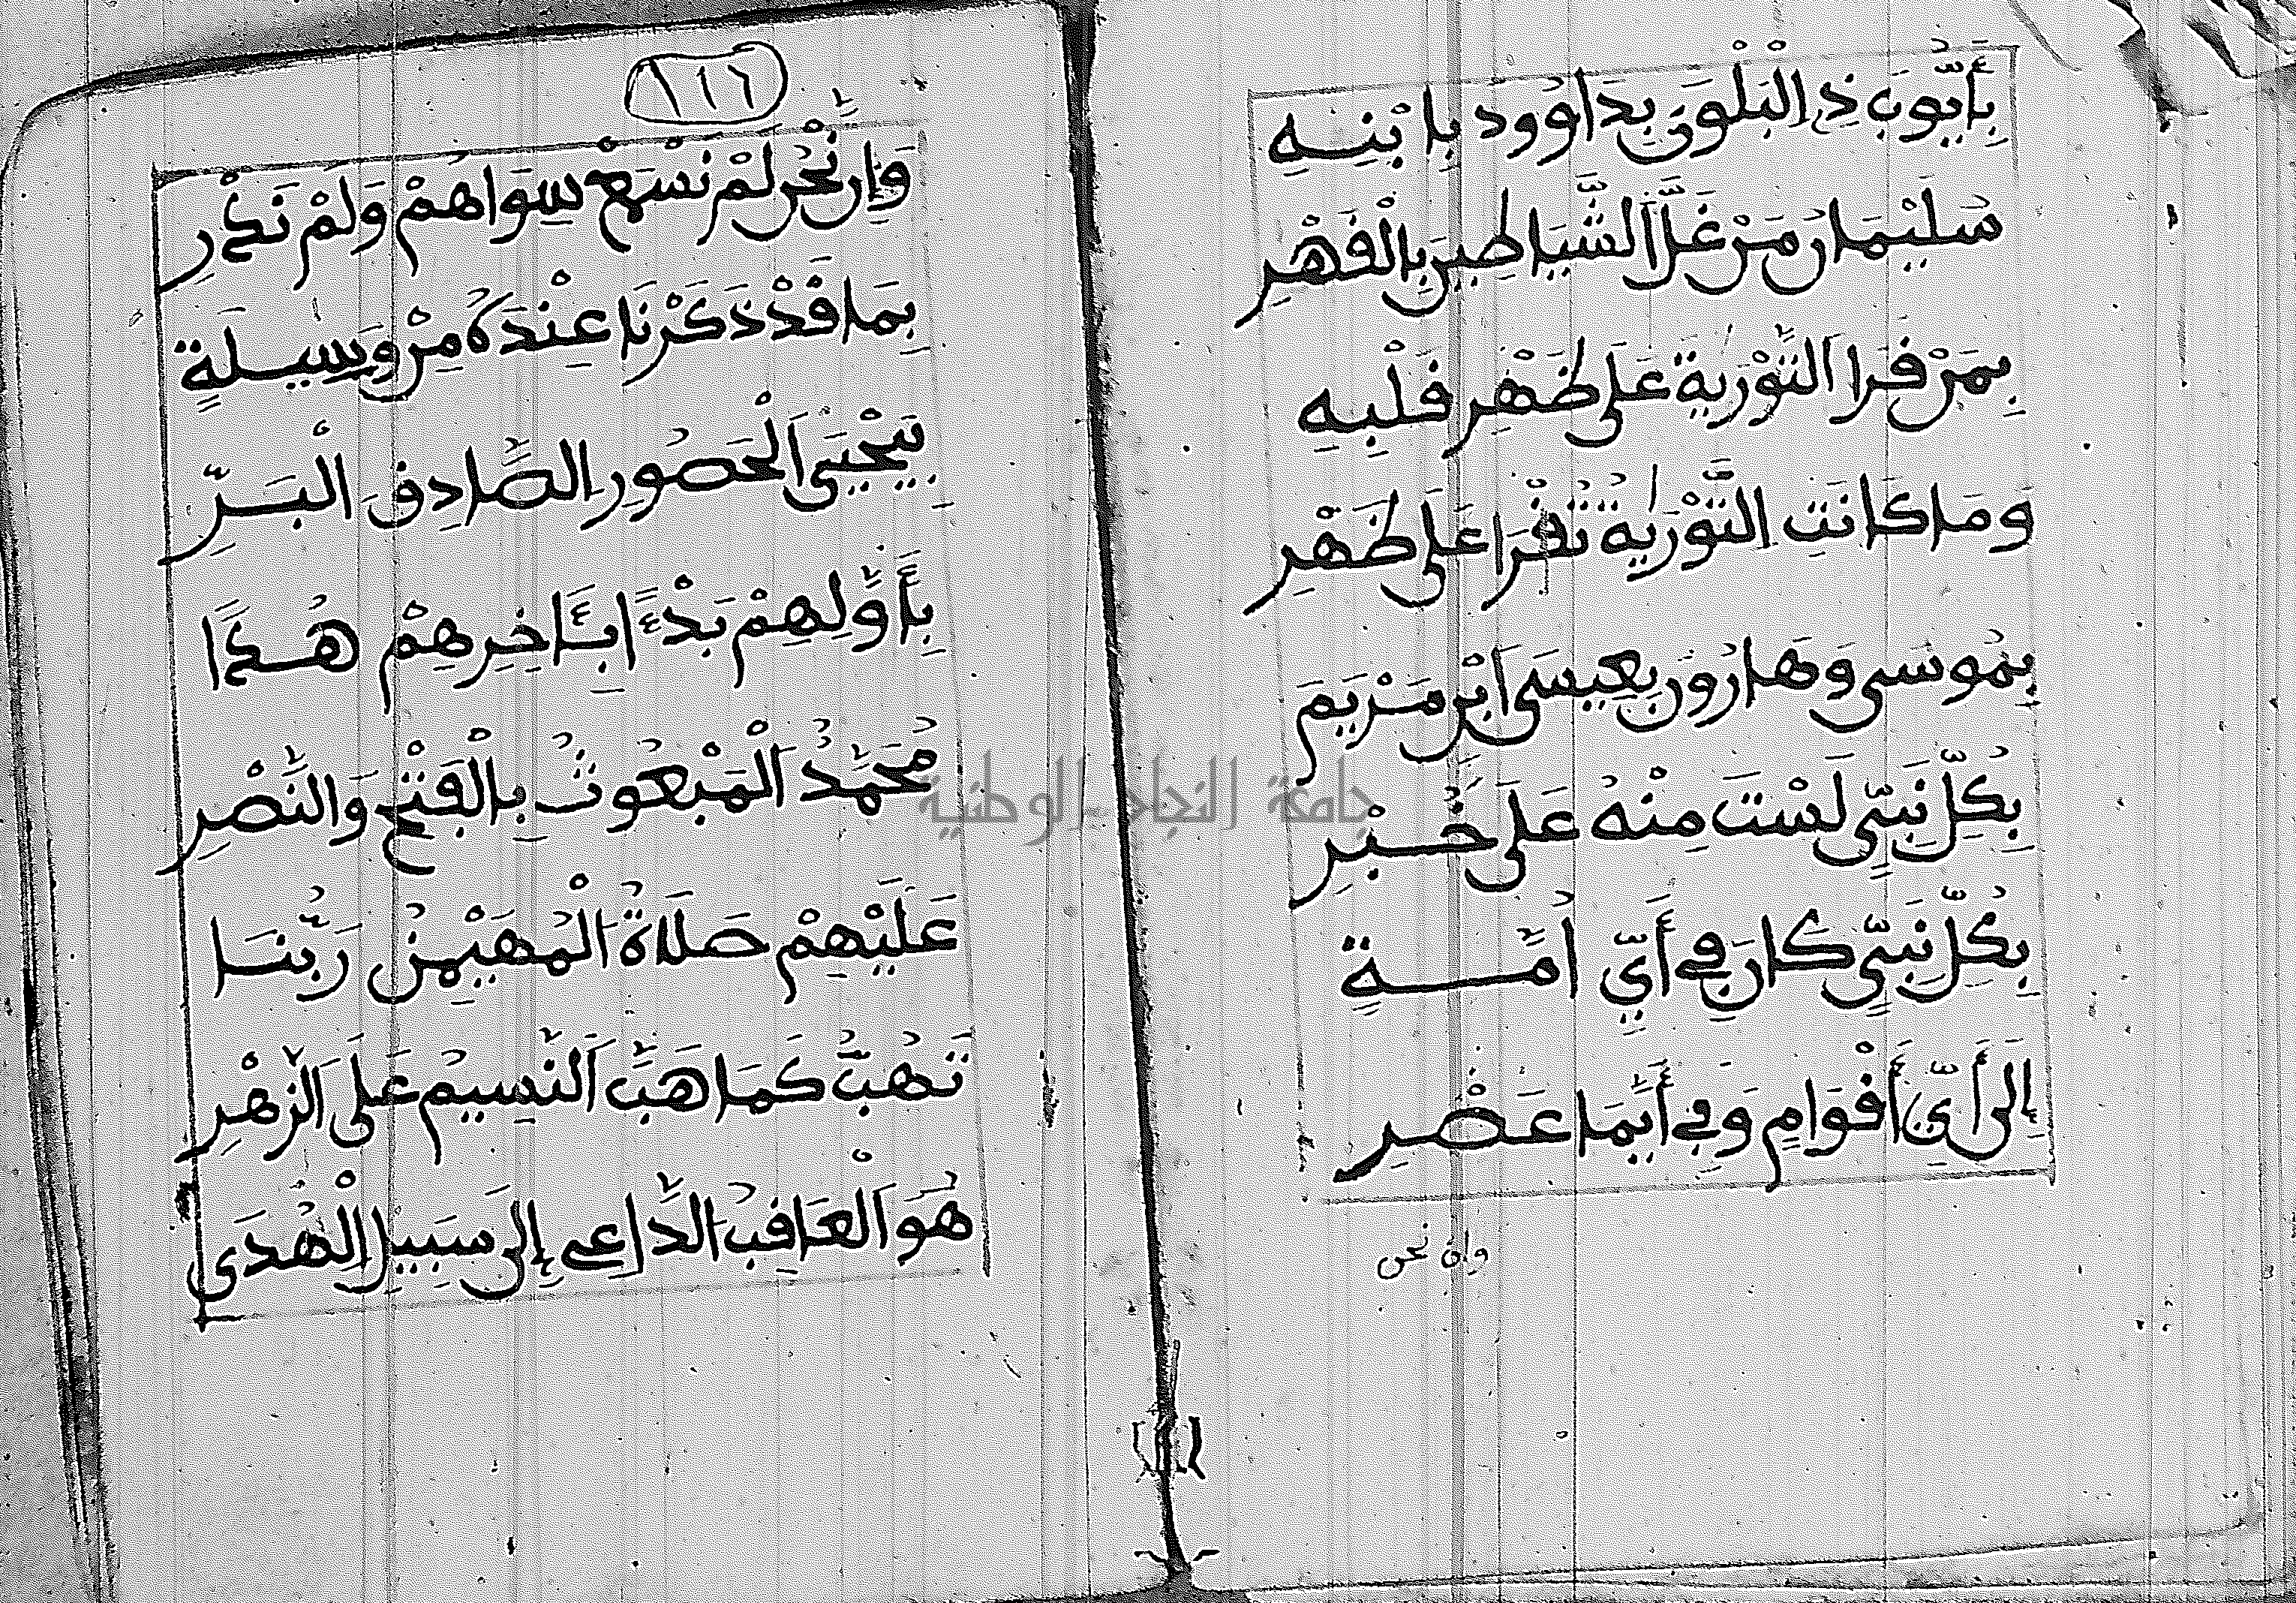 بِأَيُّوبَ ذِي الْبَلْوَى بِدَاوُودَ بِابْنِهِ
سُلَيْمَانَ مَنْ غَلَّ الشَّيَاطِينَ بِالْقَهْرِ
بِمَنْ قَرَا التَّوْرَيةَ عَلَى ظَهْرِ قَلْبِهِ
وَمَا كَانَتِ التَّوْرَيةُ تُقْرَا عَلَى ظَهْرِ
بِمُوسَى وَهَارُونَ بِعِيسَى ابْنِ مَرْيَمَ
بِكُلِّ نَبِيٍّ لَسْتَ مِنْهُ عَلَى خُبْرِ
بِكُلِّ نَبِيٍّ كَانَ فِي أَيِّ أُمَّةِ
إِلَى أَيِّ أَقْوَامٍ وَفِي أَيِّمَا عَصْرِ
وان نحن
١١٦
وَإِن نَّحْنُ لَمْ نَسْمَعْ سِوَاهُمْ وَلَمْ نَدْرِ
بِمَا قَدْ ذَكَرْنَا عِنْدَهُ مِنْ وَسِيلَةٍ
بِيَحْيَى الْحَصُورِ الصَّادِقِ الْبَرِّ
بِأَوَّلِهِمْ بَدْءًا بِآخِرِهِمْ هُدًا
مُحَمَّدٌ الْمَبْعُوثُ بِالْفَتْحِ وَالنَّصْرِ
عَلَيْهِمْ صَلَاةُ الْمُهَيْمِنُ رَبُّنَا
تَهُبُّ كَمَا هَبَّ النَّسِيمُ عَلَى الزَّهْرِ
هُوَ الْعَاقِبُ الدَّاعِي إِلَى سَبِيلِ الْهُدَى
جامعة النجاح الوطنية